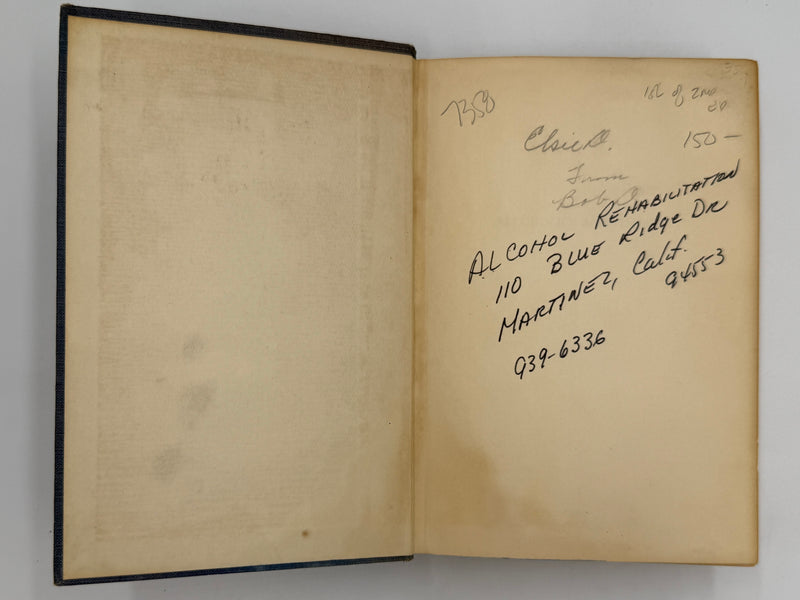 1st of 2nd
150—
Elsie D.
From
Bob D.
ALCOHOL REHABILITATION
110 BLUE Ridge DR
MARTINEZ, Calif.
94553
939-6336